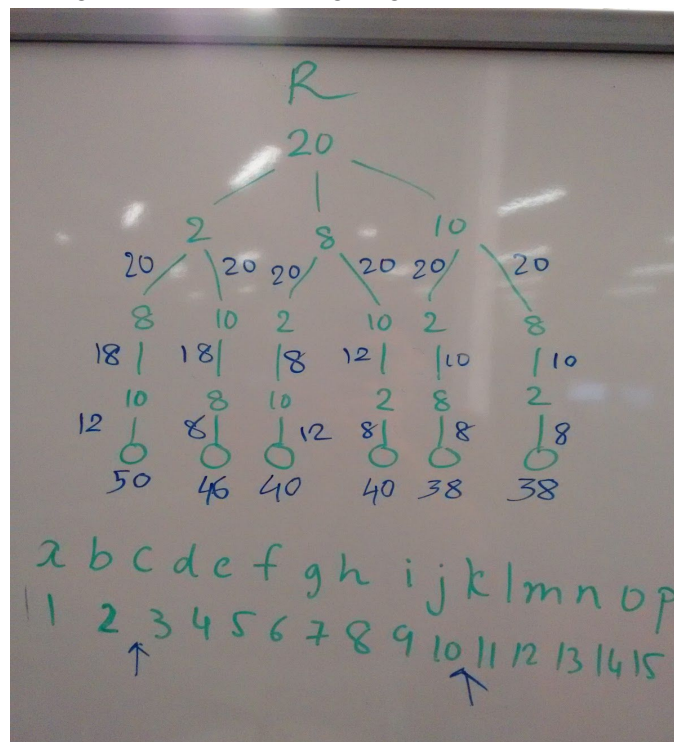 R
20
2 8 10
20 20 20 20 20 20
8 10 2 10 2 8
18 18 18 12 10 10
10 8 10 2 8 2
12 8 12 8 8 8
50 46 40 40 38 38
a b c d e f g h i j k l m n o p
1 2 3 4 5 6 7 8 9 10 11 12 13 14 15